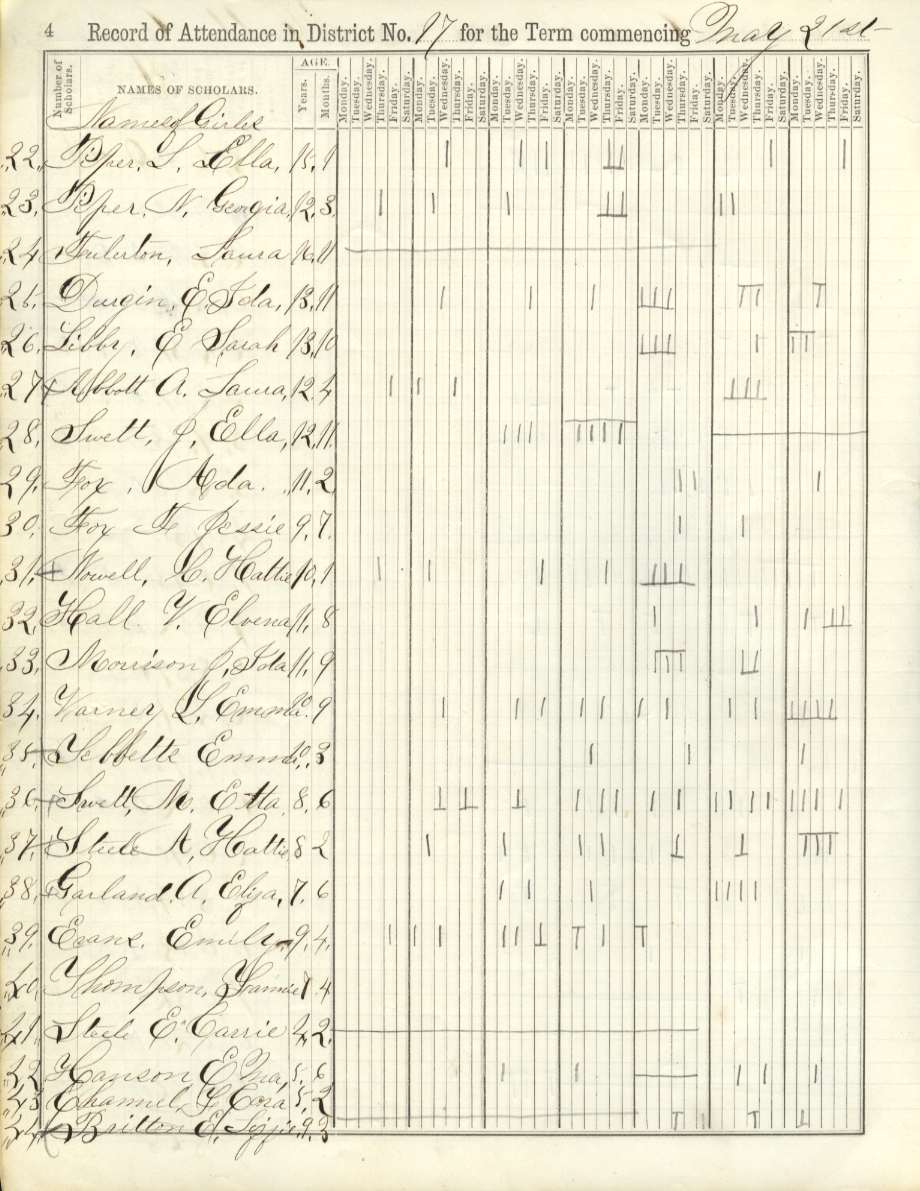 4 Record of Attendance in District No. 17 for the Term commencing May 21st
Number of Scholars. NAMES OF SCHOLARS. AGE. Years. Months. Monday. Tuesday. Wednesday. Thursday. Friday. Saturday. Monday. Tuesday. Wednesday. Thursday. Friday. Saturday. Monday. Tuesday. Wednesday. Thursday. Friday. Saturday. Monday. Tuesday. Wednesday. Thursday. Friday. Saturday. Monday. Tuesday. Wednesday. Thursday. Friday. Saturday. Monday. Tuesday. Wednesday. Thursday. Friday. Saturday. Monday. Tuesday. Wednesday. Thursday. Friday. Saturday.
Names of Girls
22. Piper, S. Ella, 15, 1
23. Piper, N. Georgia, 12, 3
24 Fulerton, Laura 16, 11
25. Durgin, E. Ida, 13, 11
26. Libby, E Sarah 13, 10
27 Abbott A. Laura, 12, 4
28. Swett, J, Ella, 12, 11
29. Fox, Ada. 11, 2
30. Fox F Jessie 9, 7.
31. Nowell, C. Hattie 10, 1
32. Hall. V. Elvena 11, 8
33. Morrison J, Ida 11, 9
34. Varney L, Emma 10. 9
35. Tebbetts Emma 10, 3
36 Swett, M. Etta 8, 6
37. Steele A, Hattie 8 2
38. Garland, A. Eliza, 7, 6
39. Evans, Emily 9, 4
40 Thompson, Fannie 7 4
41 Steele E. Carrie 4, 2
42 Hanson E 5, 6
43 Cora 5, 2
44 Britton E, Lizzie 9, 3